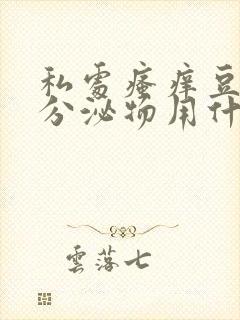 私处瘙痒豆
分泌物用什
云落七